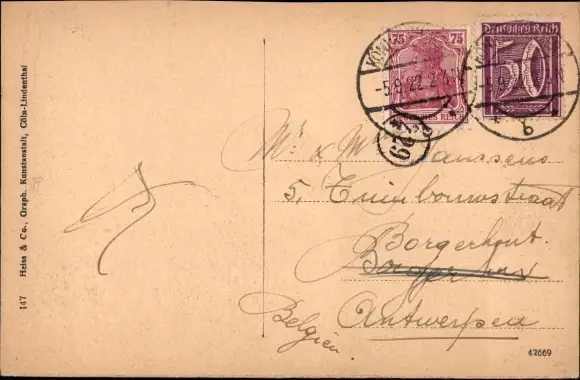 147 Heiss & Co., Graph. Kunstanstalt, Cöln-Lindenthal
75 75
Deutsches Reich
50
-5.9.22.2-3
b
Mr & Mme Janssens
5, Tuinbouwstraat
Borgerhout.
Antwerpen
Belgien.
47669